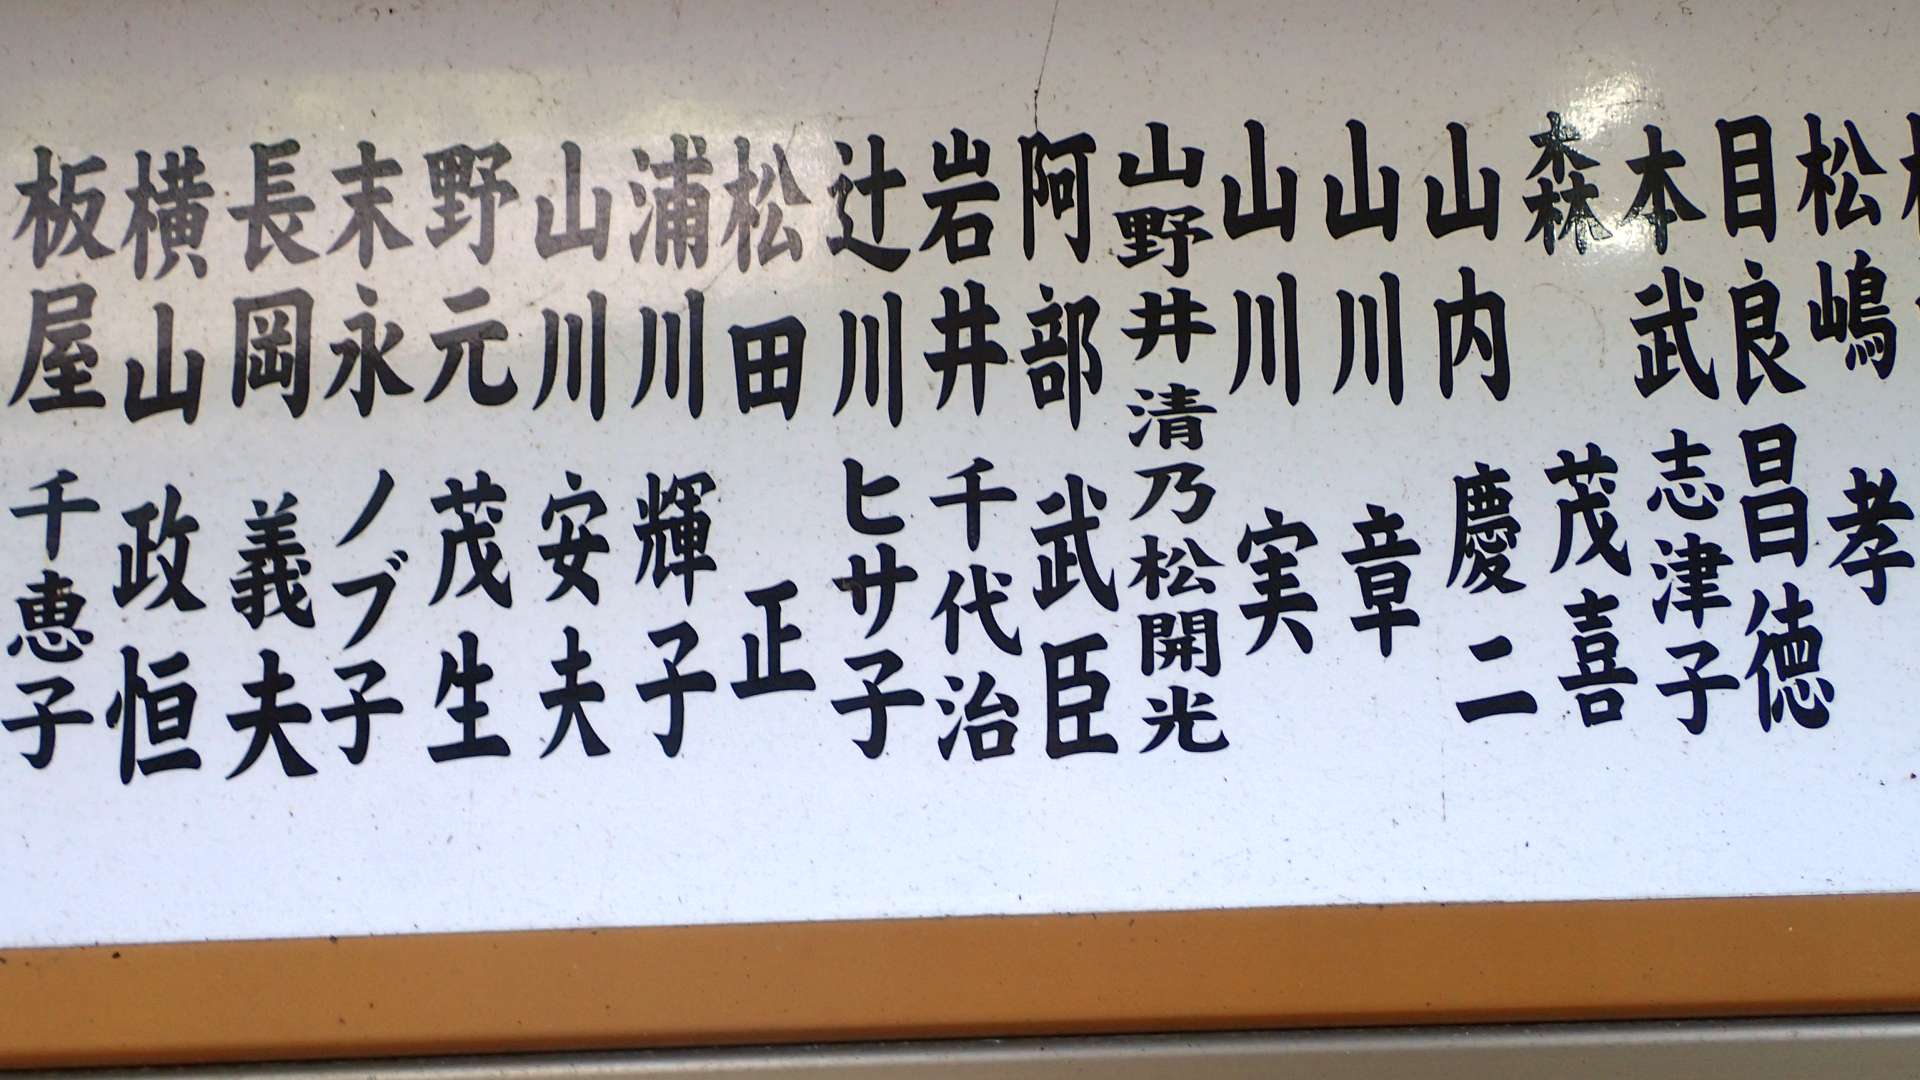 松嶋孝
目良昌徳
本武志津子
森茂喜
山内慶二
山川章
山川実
山野井清乃松開光
阿部武臣
岩井千代治
辻川ヒサ子
松田正
浦川輝子
山川安夫
野元茂生
末永ノブ子
長岡義夫
横山政恒
板屋千恵子